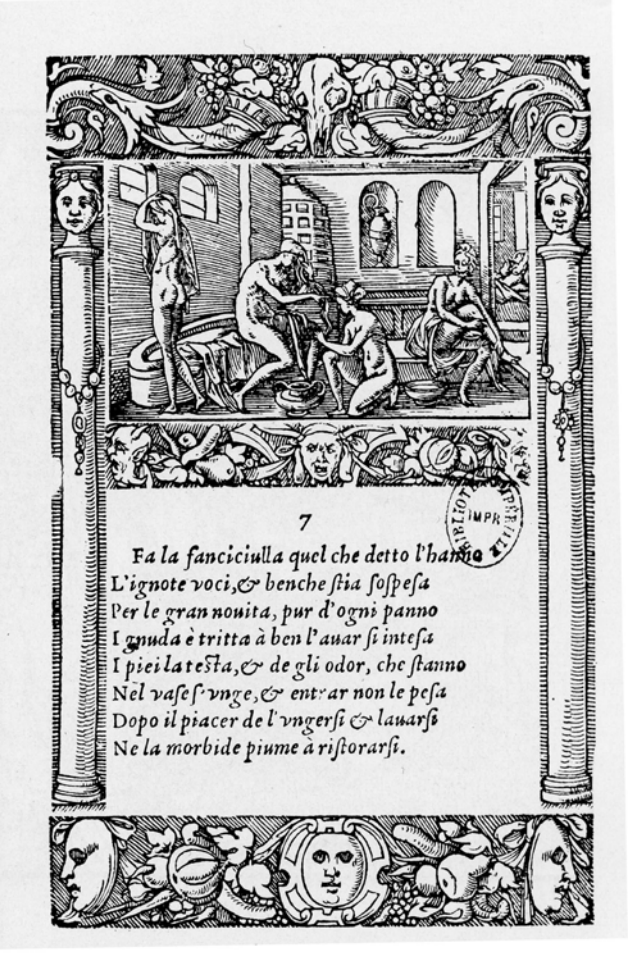 7
BIBLIOTH. IMPÉRIALE
IMPR
Fa la fanciciulla quel che detto l'hanno
L'ignote voci,& benche ſtia ſoſpeſa
Per le gran nouita, pur d'ogni panno
I gnuda è tritta à ben l'auar ſi inteſa
I piei la teſta,& de gli odor, che ſtanno
Nel vaſe s'vnge,& entrar non le peſa
Dopo il piacer de l'vngerſi & lauarſi
Ne la morbide piume à riſtorarſi.